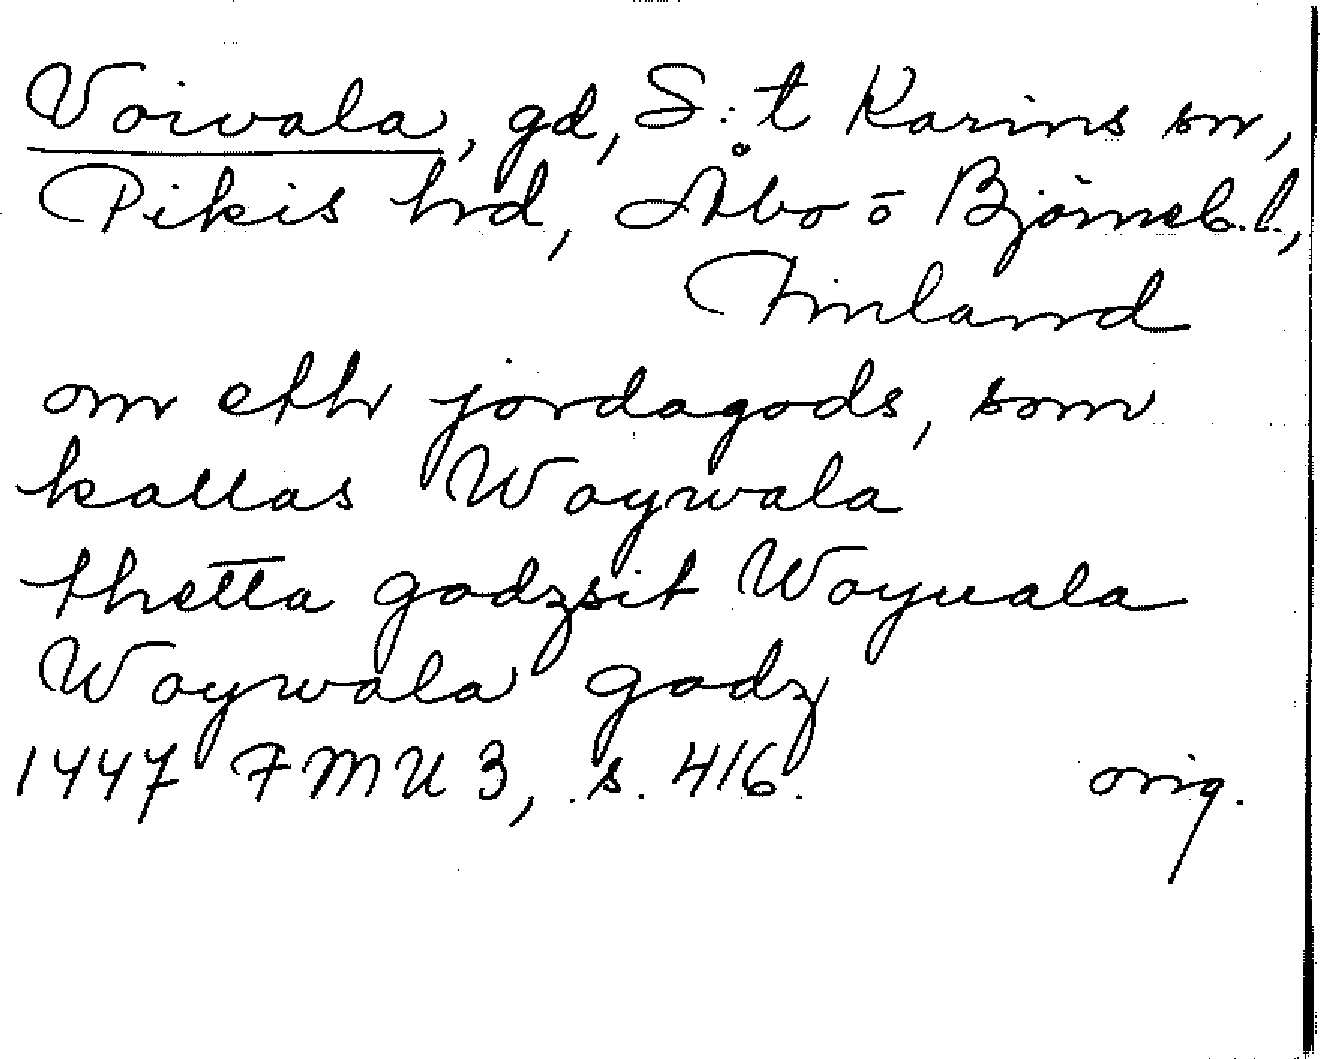 Voivala, gd, S:t Karins sn,
Pikis hrd, Åbo o Björneb.l.,
Finland
om eth jordagods, som
kallas Woywala
thetta godzsit Woyuala
Woywala godz
1447 FMU 3, s. 416. orig.